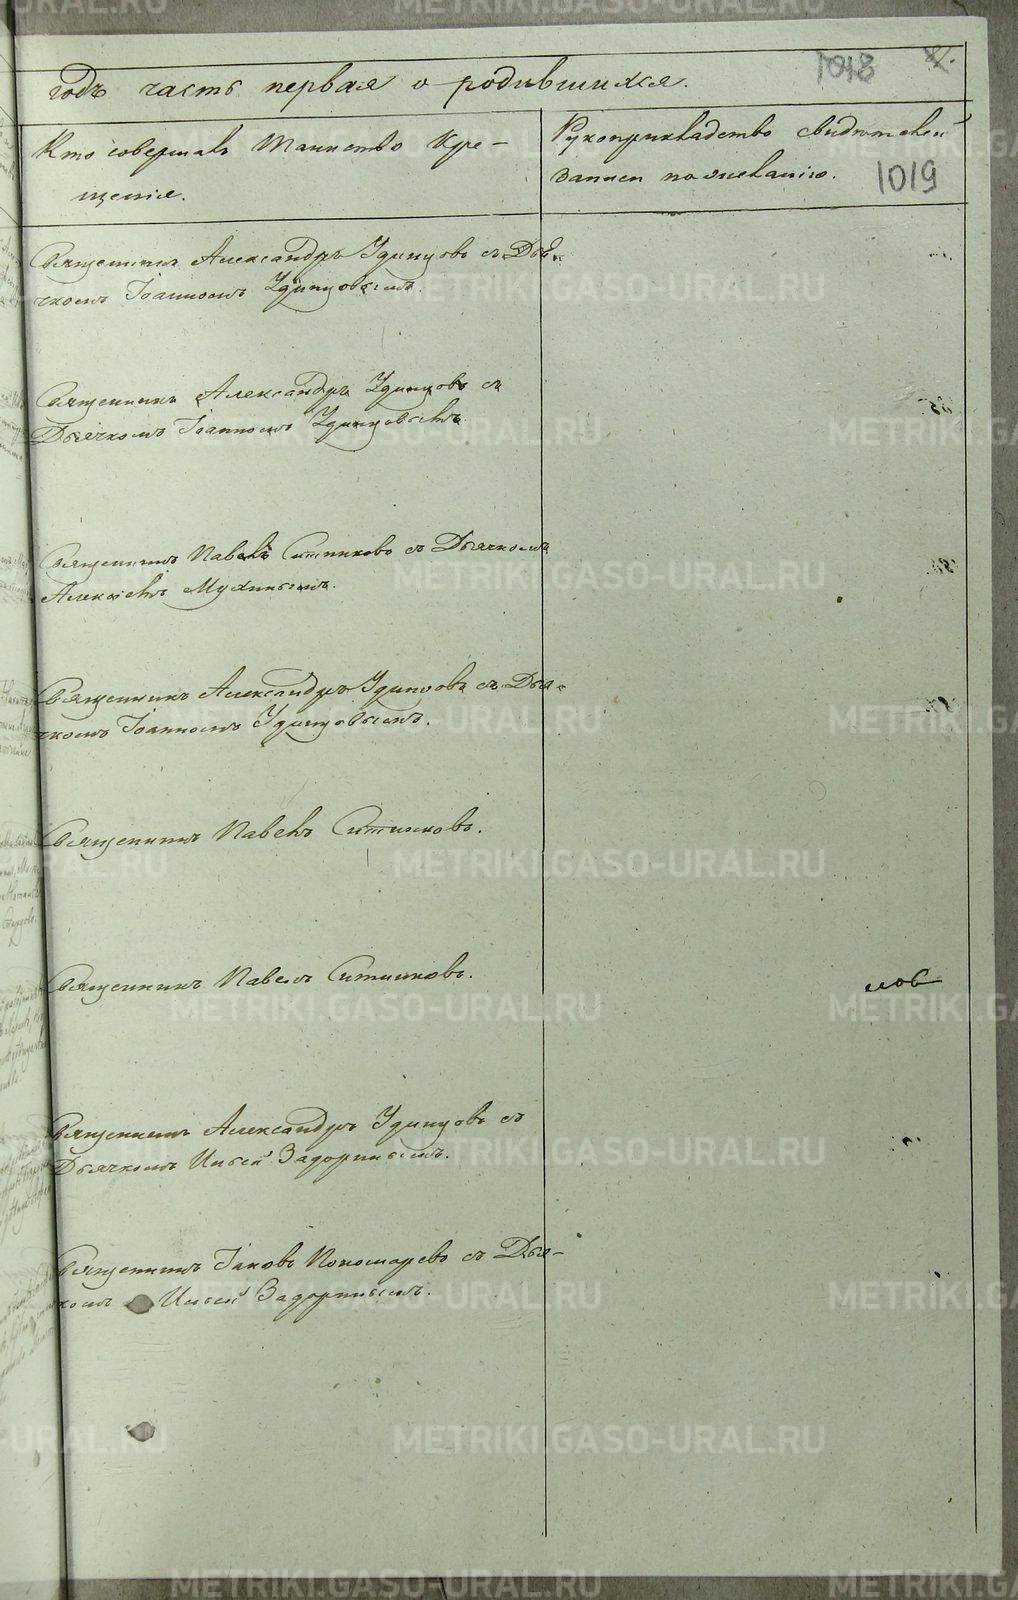 1018
годъ часть первая о родившихся.
Кто совершалъ Таинство Кре-
щенія.
Рукоприкладство свидѣтелей
записи по желанію.
1019
Священникъ Александръ Удинцовъ съ Дья-
чкомъ Іоанномъ Удинцовымъ.
Священникъ Александръ Удинцовъ съ
Дьячкомъ Іоанномъ Удинцовымъ.
Священникъ Павелъ Ситниковъ съ Дьячкомъ
Алексѣемъ Мухинымъ.
Священникъ Александръ Удинцовъ съ Дья-
чкомъ Іоанномъ Удинцовымъ.
Священникъ Павелъ Ситниковъ.
Священникъ Павелъ Ситниковъ.
Священникъ Александръ Удинцовъ съ
Дьячкомъ Задоринымъ.
Священникъ Іаковъ Пономаревъ съ Дья-
комъ Задоринымъ.
METRIKI.GASO-URAL.RU